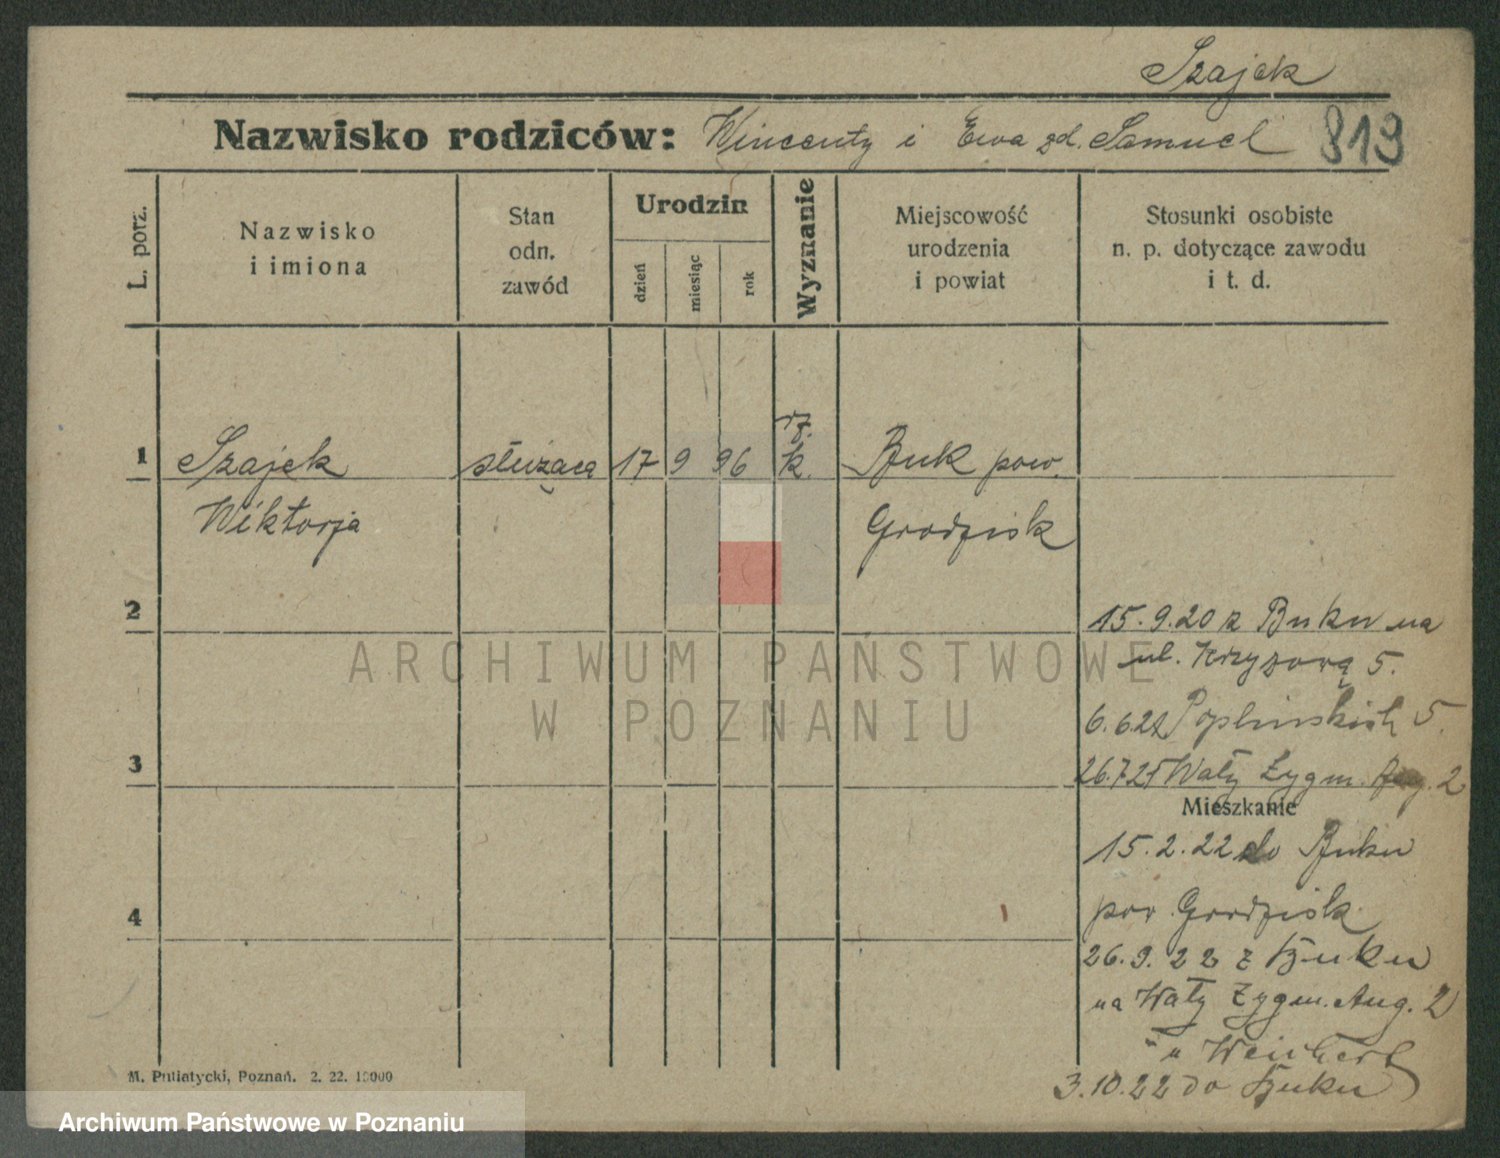 Szajek
Nazwisko rodziców: Wincenty i Ewa zd. Samuel 819
L. porz.
Nazwisko
i imiona
Stan
odn.
zawód
Urodzin
dzień
miesiąc
rok
Wyznanie
Miejscowość
urodzenia
i powiat
Stosunki osobiste
n. p. dotyczące zawodu
i t. d.
1 Szajek służąca 17 9 96 rz. k. Buk pow.
Wiktorja Grodzisk
2
15.9.20 z Buku na
ul. Krzyżową 5.
6.6.21 Poplińskich 5.
3
26.7.21 Wały Zygm. Aug. 2
Mieszkanie
15.2.22 do Buku
pow. Grodzisk
4
26.9.22 z Buku
na Wały Zygm. Aug. 2
u Weichert
3.10.22 do Buku
M. Putiatycki, Poznań. 2. 22. 10000
ARCHIWUM PAŃSTWOWE
W POZNANIU
Archiwum Państwowe w Poznaniu